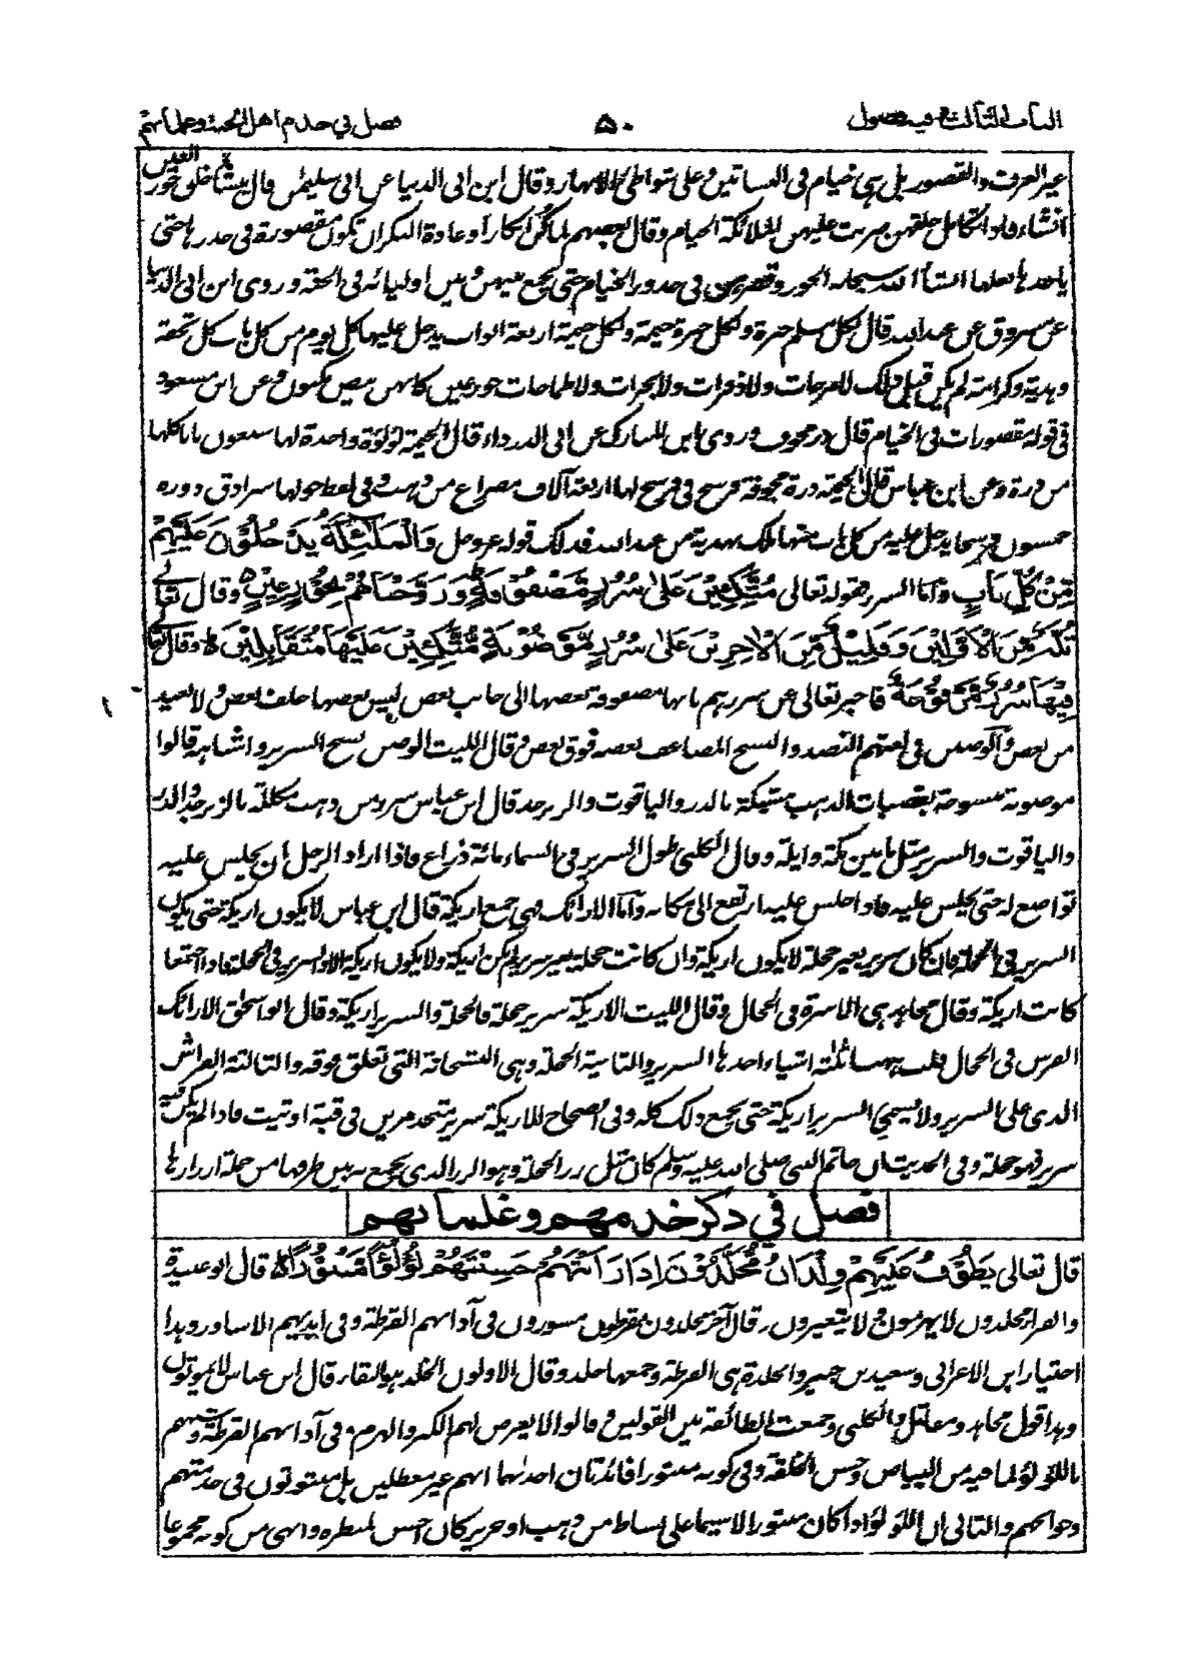 الباب الثالث وفيه فصول ٥٠ فصل في خدام اهل الجنة وغلمانهم
غير الغرف والقصور بل هي خيام في البساتين وعلى شواطئ الانهار وقال ابن ابي الدنيا عن ابي سليمن قال ينشأ خلق حور العين
انشاء فاذا تكامل خلقهن ضربت عليهن الملائكة الخيام وقال بعضهم لما كن ابكارا وعادة البكر ان تكون مقصورة في خدرها حتى
ياخذها بعلها انشأ الله سبحانه الحور وقصرهن في خدور الخيام حتى يجمع بينهن وبين اوليائه في الجنة وروى ابن ابي الدنيا
عن مسروق عن عبد الله قال لكل مسلم خيرة ولكل خيرة خيمة ولكل خيمة اربعة ابواب يدخل عليها كل يوم من كل باب كل تحفة
وهدية وكرامة لم يكن قبل ذلك لا مرحات ولا ذفرات ولا بخرات ولا طماحات حور عين كانهن بيض مكنون وعن ابن مسعود
في قوله مقصورات في الخيام قال در مجوف وروى ابن المبارك عن ابي الدرداء قال الخيمة لؤلؤة واحدة لها سبعون بابا كلها
من درة وعن ابن عباس قال الخيمة درة مجوفة فرسخ في فرسخ لها اربعة آلاف مصراع من ذهب وفي لفظ حولها سرادق دوره
خمسون فرسخا يدخل عليه من كل باب منها ملك بهدية من عند الله فذلك قوله عز وجل وَالْمَلٰٓئِكَةُ يَدْخُلُوْنَ عَلَيْهِمْ
مِّنْ كُلِّ بَابٍ واما السرر فقوله تعالى مُتَّكِئِيْنَ عَلٰى سُرُرٍ مَّصْفُوْفَةٍ وَزَوَّجْنَاهُمْ بِحُوْرٍ عِيْنٍ وقال تعالى
ثُلَّةٌ مِّنَ الْاَوَّلِيْنَ وَقَلِيْلٌ مِّنَ الْاٰخِرِيْنَ عَلٰى سُرُرٍ مَّوْضُوْنَةٍ مُّتَّكِئِيْنَ عَلَيْهَا مُتَقَابِلِيْنَ وقال تعالى
فِيْهَا سُرُرٌ مَّرْفُوْعَةٌ فاخبر تعالى عن سررهم بانها مصفوفة بعضها الى جانب بعض ليس بعضها خلف بعض ولا بعيد
من بعض والوضين في لغتهم النضد والنسج المضاعف بعضه فوق بعض وقال الليث الوضن نسج السرير واشباهه قالوا
موضونة منسوجة بقضبان الذهب مشبكة بالدر والياقوت والزبرجد قال ابن عباس سرر من ذهب مكللة بالزبرجد والدر
والياقوت والسرير مثل ما بين مكة وايلة وقال الكلبي طول السرير في السماء مائة ذراع فاذا اراد الرجل ان يجلس عليه
تواضع له حتى يجلس عليه فاذا جلس عليه ارتفع الى مكانه واما الارائك فهي جمع اريكة قال ابن عباس لا يكون اريكة حتى يكون
السرير في الحجلة فان كان سرير بغير حجلة لا يكون اريكة وان كانت حجلة بغير سرير لم يكن اريكة ولا يكون اريكة الا والسرير في الحجلة فاذا اجتمعا
كانت اريكة وقال مجاهد هي الاسرة في الحجال وقال الليث الاريكة سرير حجلة فالحجلة والسرير اريكة وقال ابو اسحق الارائك
الفرش في الحجال قلت ههنا ثلثة اشياء احدها السرير والثانية الحجلة وهي البشخانة التي تعلق فوقه والثالثة الفراش
الذي على السرير ولا يسمى السرير اريكة حتى يجمع ذلك كله وفي الصحاح الاريكة سرير متخذ مزين في قبة او بيت فاذا لم يكن فيه
سرير فهو حجلة وفي الحديث ان خاتم النبي صلى الله عليه وسلم كان مثل زر الحجلة وهو الزر الذي يجمع به بين طرفيها من جملة ازرارها
فصل في ذكر خدمهم وغلمانهم
قال تعالى يَطُوْفُ عَلَيْهِمْ وِلْدَانٌ مُّخَلَّدُوْنَ اِذَا رَاَيْتَهُمْ حَسِبْتَهُمْ لُؤْلُؤًا مَّنْثُوْرًا قال ابو عبيدة
والفراء مخلدون لا يهرمون ولا يتغيرون وقال آخر مخلدون مقرطون مسورون في آذانهم القرطة وفي ايديهم الاساور وهذا
اختيار ابن الاعرابي وسعيد بن جبير والخلدة هي القرطة وجمعها خلد وقال الاولون الخلد هو البقاء قال ابن عباس لا يموتون
وهذا قول مجاهد ومقاتل والكلبي وجمعت طائفة بين القولين وقالوا لا يعرض لهم الكبر والهرم وفي آذانهم القرطة وشبههم
باللؤلؤ لما فيه من البياض وحسن الخلقة وفي كونه منثورا فائدتان احدهما انهم غير معطلين بل مبثوثون في خدمتهم
وحوائجهم والثاني ان اللؤلؤ اذا كان منثورا لا سيما على بساط من ذهب او حرير كان احسن لمنظره وابهى من كونه مجموعا